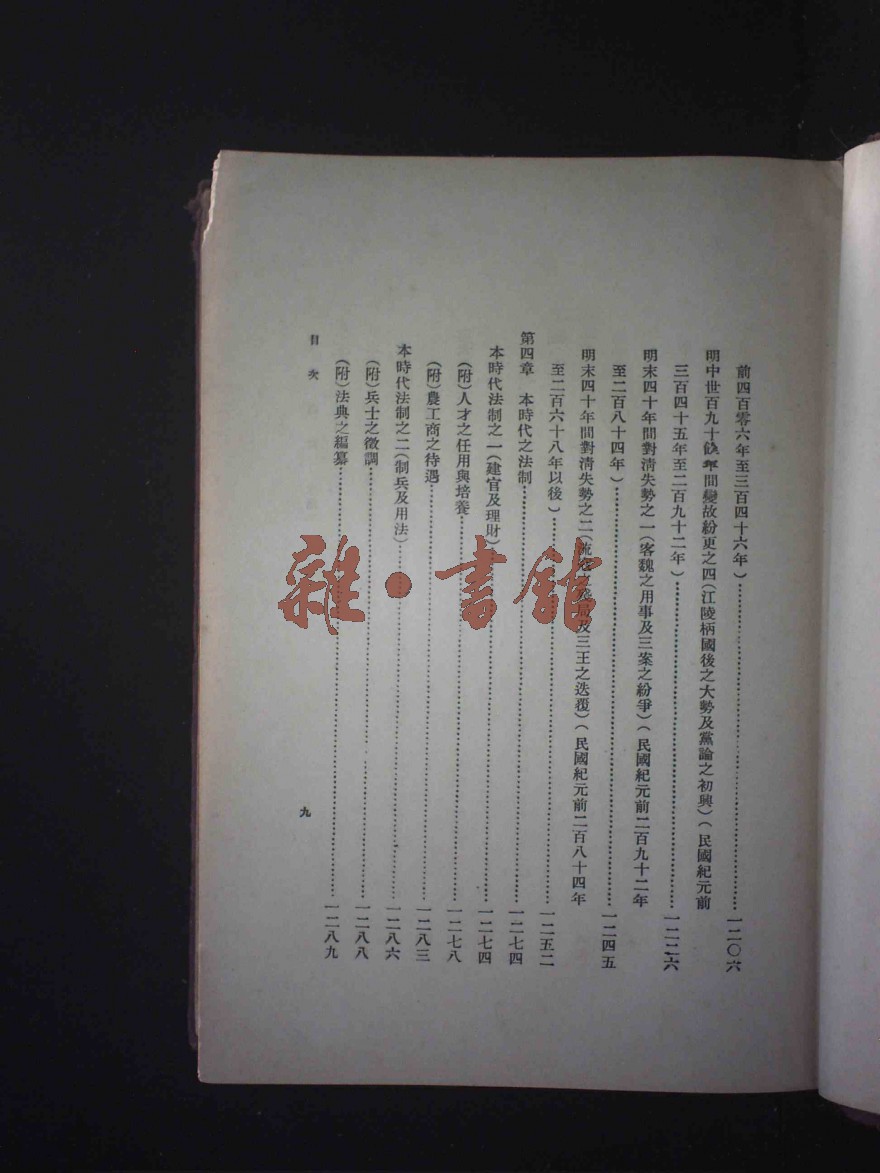 前四百零六年至三百四十六年）……一二〇六
明中世百九十餘年間變故紛更之四（江陵柄國後之大勢及黨論之初興）（民國紀元前
三百四十五年至二百九十二年）……一二二六
明末四十年間對淸失勢之一（客魏之用事及三案之紛爭）（民國紀元前二百九十二年
至二百八十四年）……一二四五
明末四十年間對淸失勢之二（流及三王之迭覆）（民國紀元前二百八十四年
至二百六十八年以後）……一二五二
第四章　本時代之法制……一二七四
本時代法制之一（建官及理財）……一二七四
（附）人才之任用與培養……一二七八
（附）農工商之待遇……一二八三
本時代法制之二（制兵及用法）……一二八六
（附）兵士之徵調……一二八八
（附）法典之編纂……一二八九
目次
九
雜·書館